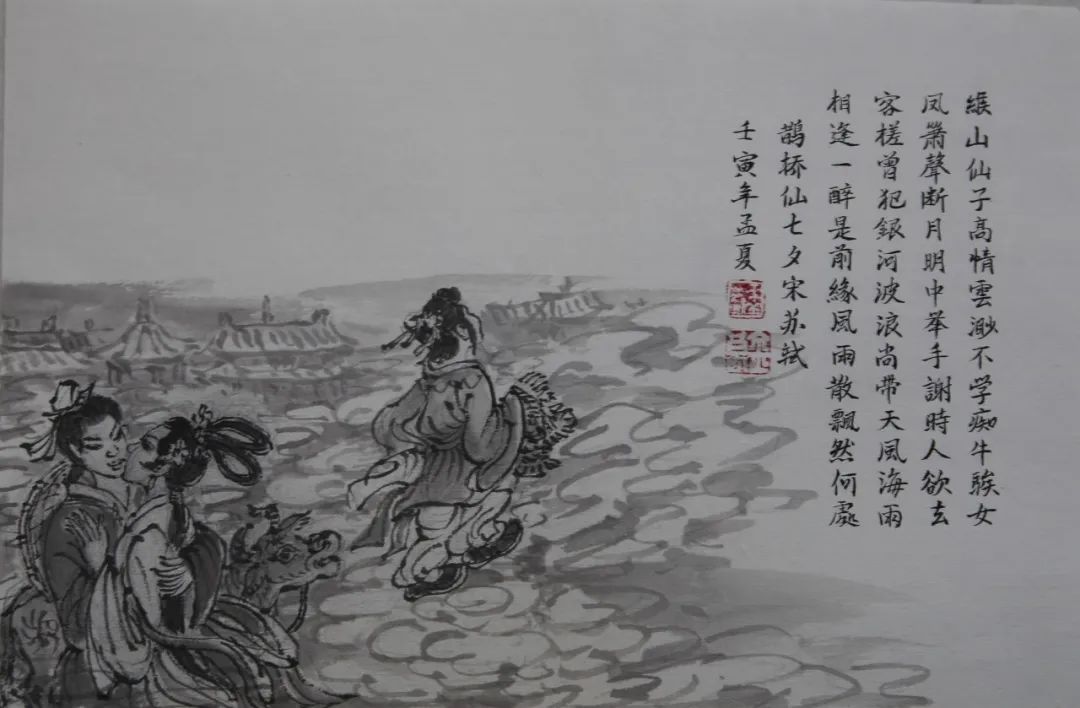 緱山仙子高情雲渺不学痴牛騃女
凤簫聲断月明中举手謝時人欲去
客槎曾犯銀河波浪尚带天風海雨
相逢一醉是前緣風雨散飄然何處
鹊桥仙七夕宋苏轼
壬寅年孟夏